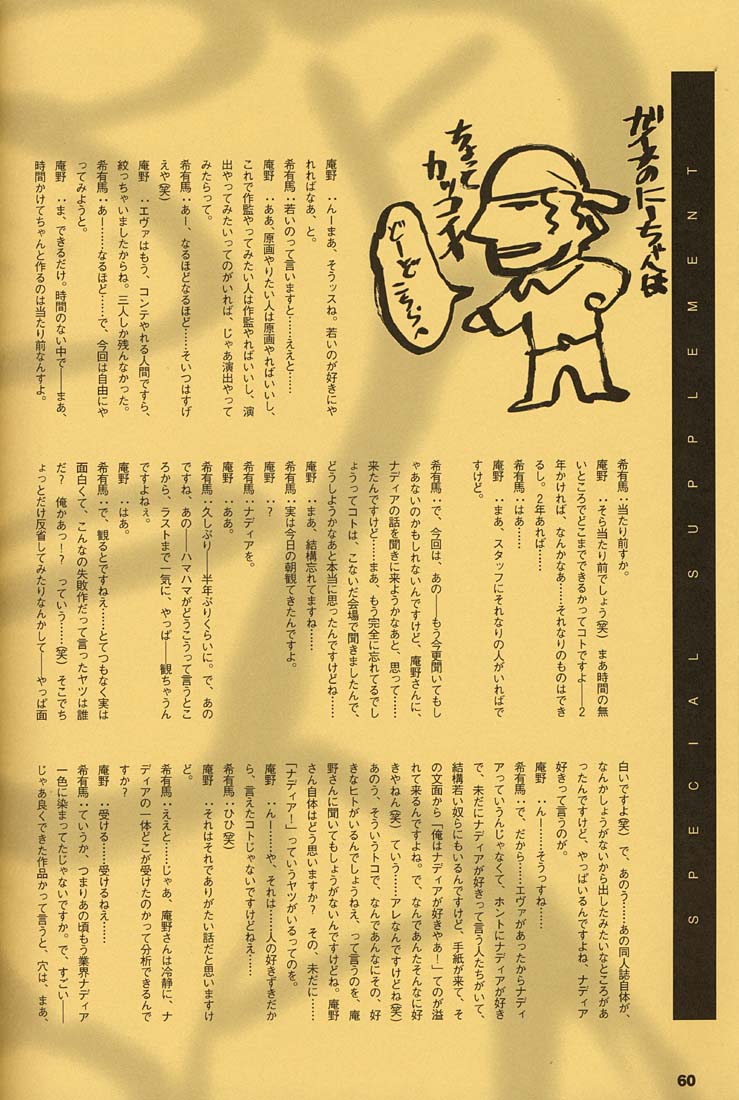 SPECIAL SUPPLEMENT
ガイナのにーちゃんは
ちょっと
カッコイイ
どーどこちらへ
庵野 :んーまあ、そうッスね。若いのが好きにや
れればなあ、と。
希有馬:若いのって言いますと……ええと……
庵野 :ああ、原画やりたい人は原画やればいいし、
これで作監やってみたい人は作監やればいいし、演
出やってみたいってのがいれば、じゃあ演出やって
みたらって。
希有馬:あー、なるほどなるほど……そいつはすげ
えや(笑)
庵野 :エヴァはもう、コンテやれる人間ですら、
絞っちゃいましたからね。三人しか残んなかった。
希有馬:あー……なるほど……で、今回は自由にや
ってみようと。
庵野 :ま、できるだけ。時間のない中で――まあ、
時間かけてちゃんと作るのは当たり前なんすよ。
希有馬:当たり前すか。
庵野 :そら当たり前でしょう(笑) まあ時間の無
いところでどこまでできるかってコトですよ――2
年かければ、なんかなあ……それなりのものはでき
るし。2年あれば……
希有馬:はあ……
庵野 :まあ、スタッフにそれなりの人がいればで
すけど。
希有馬:で、今回は、あの――もう今更聞いてもし
ゃあないのかもしれないんですけど、庵野さんに、
ナディアの話を聞きに来ようかなあと、思って……
来たんですけど……まあ、もう完全に忘れてるでし
ょうってコトは、こないだ会場で聞きましたんで、
どうしようかなあと本当に思ったんですけどね……
庵野 :まあ、結構忘れてますね……
希有馬:実は今日の朝観てきたんですよ。
庵野 :?
希有馬:ナディアを。
庵野 :ああ。
希有馬:久しぶり――半年ぶりくらいに。で、あの
ですね、あの――ハマハマがどうこうって言うとこ
ろから、ラストまで一気に、やっぱ――観ちゃうん
ですよねぇ。
庵野 :はあ。
希有馬:で、観るとですねえ……とてつもなく実は
面白くて、こんなの失敗作だって言ったヤツは誰
だ? 俺かあっ!? っていう……(笑) そこでち
ょっとだけ反省してみたりなんかして――やっぱ面
白いですよ(笑) で、あのう……あの同人誌自体が、
なんかしょうがないから出したみたいなところがあ
ったんですけど、やっぱいるんですよね、ナディア
好きって言うのが。
庵野 :んー……そうっすね……
希有馬:で、だから……エヴァがあったからナディ
アっていうんじゃなくて、ホントにナディアが好き
で、未だにナディアが好きって言う人たちがいて、
結構若い奴らにもいるんですけど、手紙が来て、そ
の文面から「俺はナディアが好きやあ!」てのが溢
れて来るんですよね。で、なんであんたそんなに好
きやねん(笑) ていう……アレなんですけどね(笑)
あのう、そういうトコで、なんであんなにその、好
きなヒトがいるんでしょうねえ、って言うのを、庵
野さんに聞いてもしょうがないんですけどね。庵野
さん自体はどう思いますか? その、未だに……
「ナディア!」っていうヤツがいるってのを。
庵野 :んー……や、それは……人の好きずきだか
ら、言えたコトじゃないですけどねえ……
希有馬:ひひ(笑)
庵野 :それはそれでありがたい話だと思いますけ
ど。
希有馬:ええと……じゃあ、庵野さんは冷静に、ナ
ディアの一体どこが受けたのかって分析できるんで
すか?
庵野 :受ける……受けるねえ……
希有馬:ていうか、つまりあの頃もう業界ナディア
一色に染まってたじゃないですか。で、すごい――
じゃあ良くできた作品かって言うと、穴は、まあ、
60